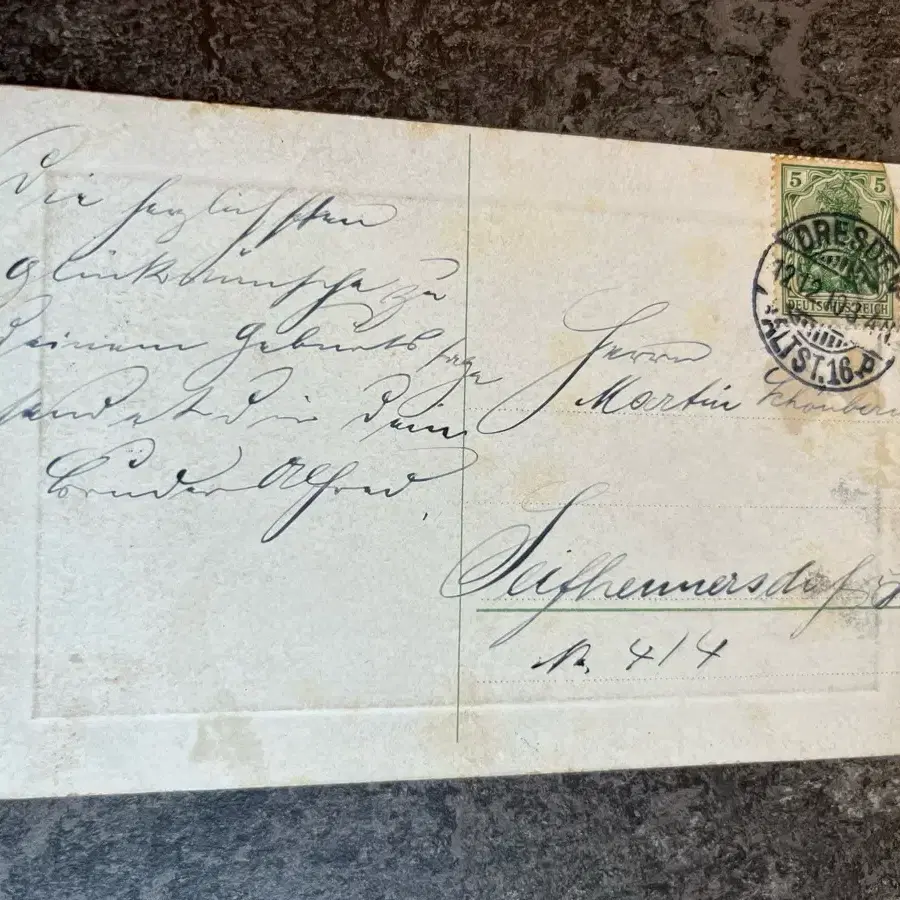 Die herzlichsten
Glückwünsche zu
Deinem Geburtstage
sendet dir dein
Bruder Alfred
5 5
DRESDEN
DEUTSCHES REICH
ALTST. 16.
Herrn
Martin
Seifhennersdorf
N. 414